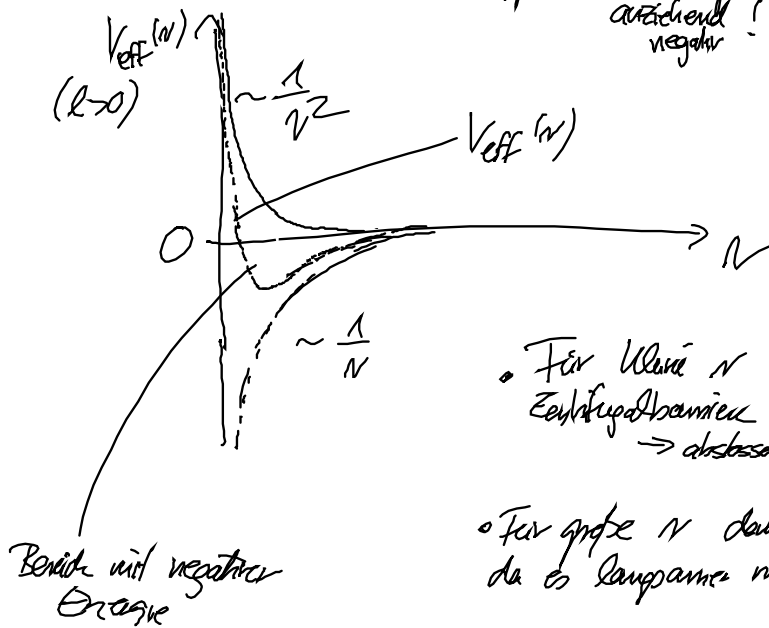 anziehend !
negativ
V_eff(r)
(l>0)
~ 1/r²
V_eff(r)
0
r
~ 1/r
• Für kleine r
Zentrifugalbarriere
→ abstosse
• Für große r
da es langsamer
Bereich mit negativer
Energie